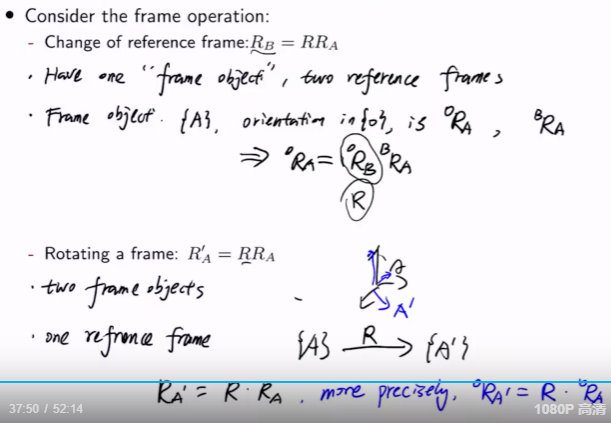 • Consider the frame operation:
- Change of reference frame: R_B = RR_A
· Have one "frame object", two reference frames
· Frame object. {A}, orientation in {o}, is ⁰R_A , ᴮR_A
⇒ ⁰R_A = ⁰R_B ᴮR_A
R
- Rotating a frame: R'_A = RR_A
A
· two frame objects
A'
· one refrence frame
{A} R→ {A'}
R_A' = R · R_A . more precisely, ⁰R_A' = R · ⁰R_A
37:50 / 52:14
1080P 高清